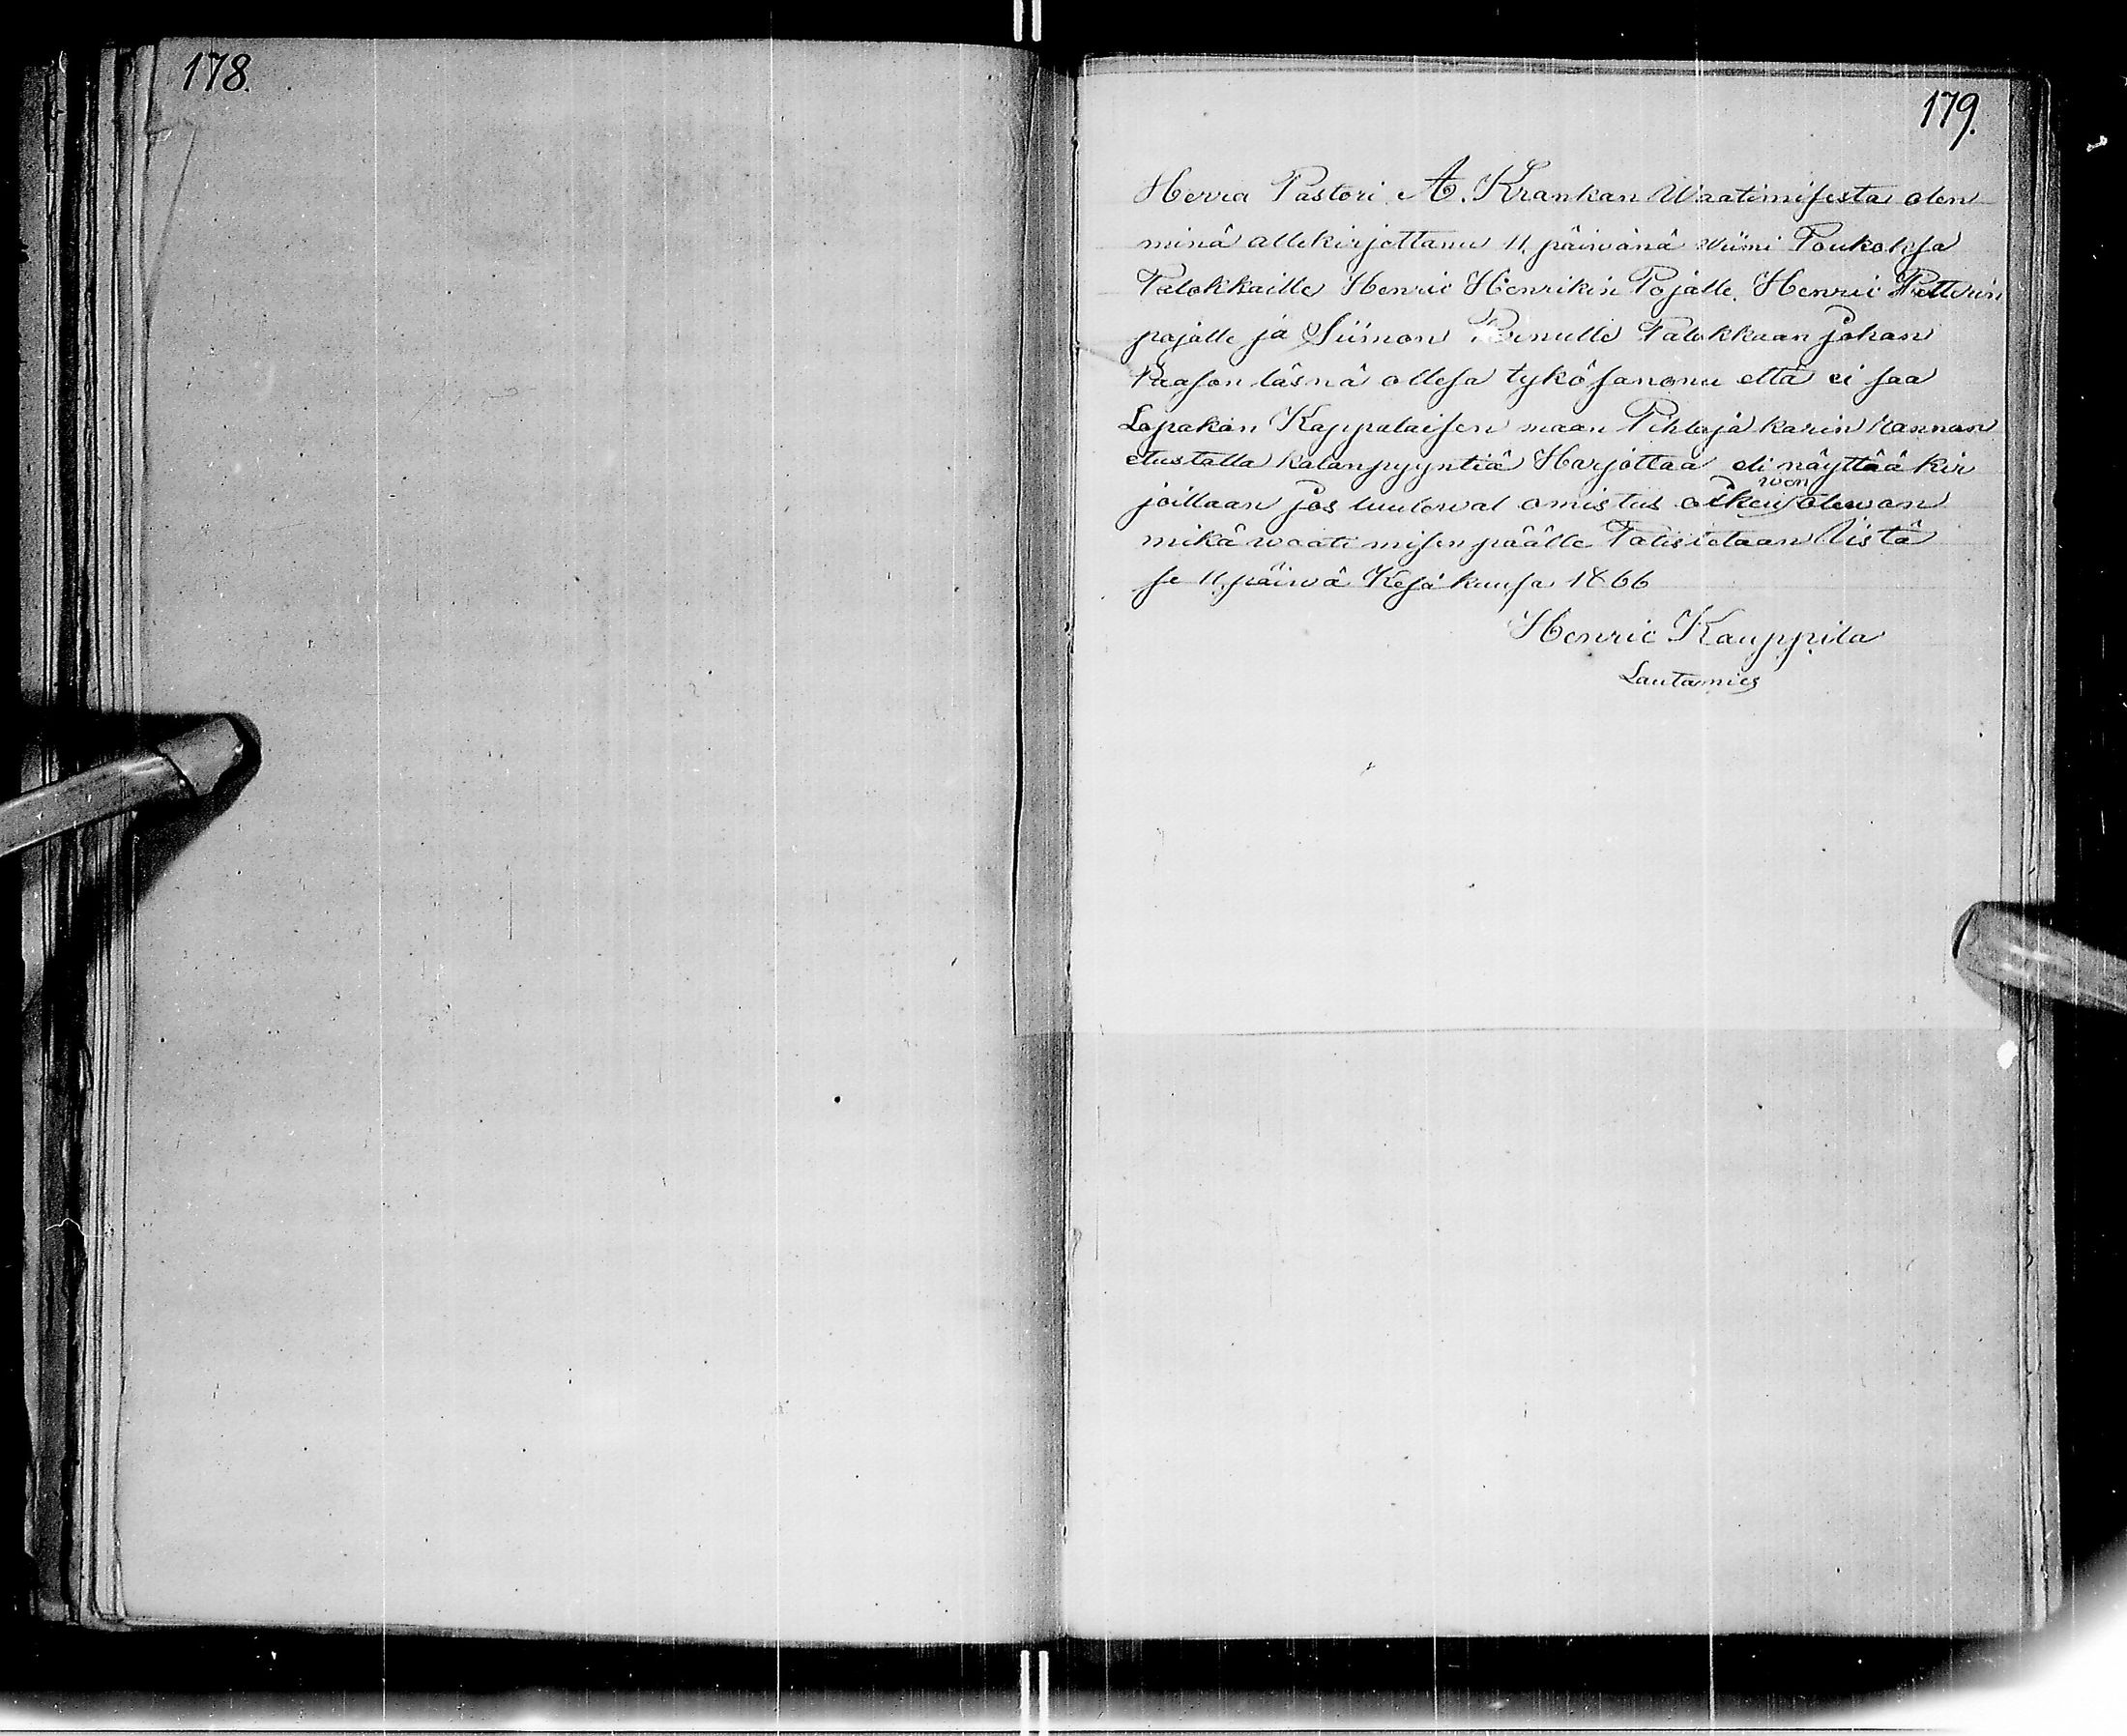 178.
179.
Herra Pastori A. Krankan Waatimisesta olen
minä allekirjottanu 11. päiwänä wiimi Toukoksa
Talokkaille Henric Henrikin Pojalle, Henric Petterin
pojalle ja Siimon Talokkaan Johan
Paason läsnä ollesa tykö sanonu että ei saa
Lapakon Kappalaisen maan Pihlaja karin rannan
etustalla kalanpyyntiä Harjottaa eli näyttää kir
joillaan jos luulewat omistus oikeu won olewan
mikä waatimisen päälle Totistetaan Iistä
se 11. päiwä Kesäkuusa 1866
Henric Kauppila
Lautamies